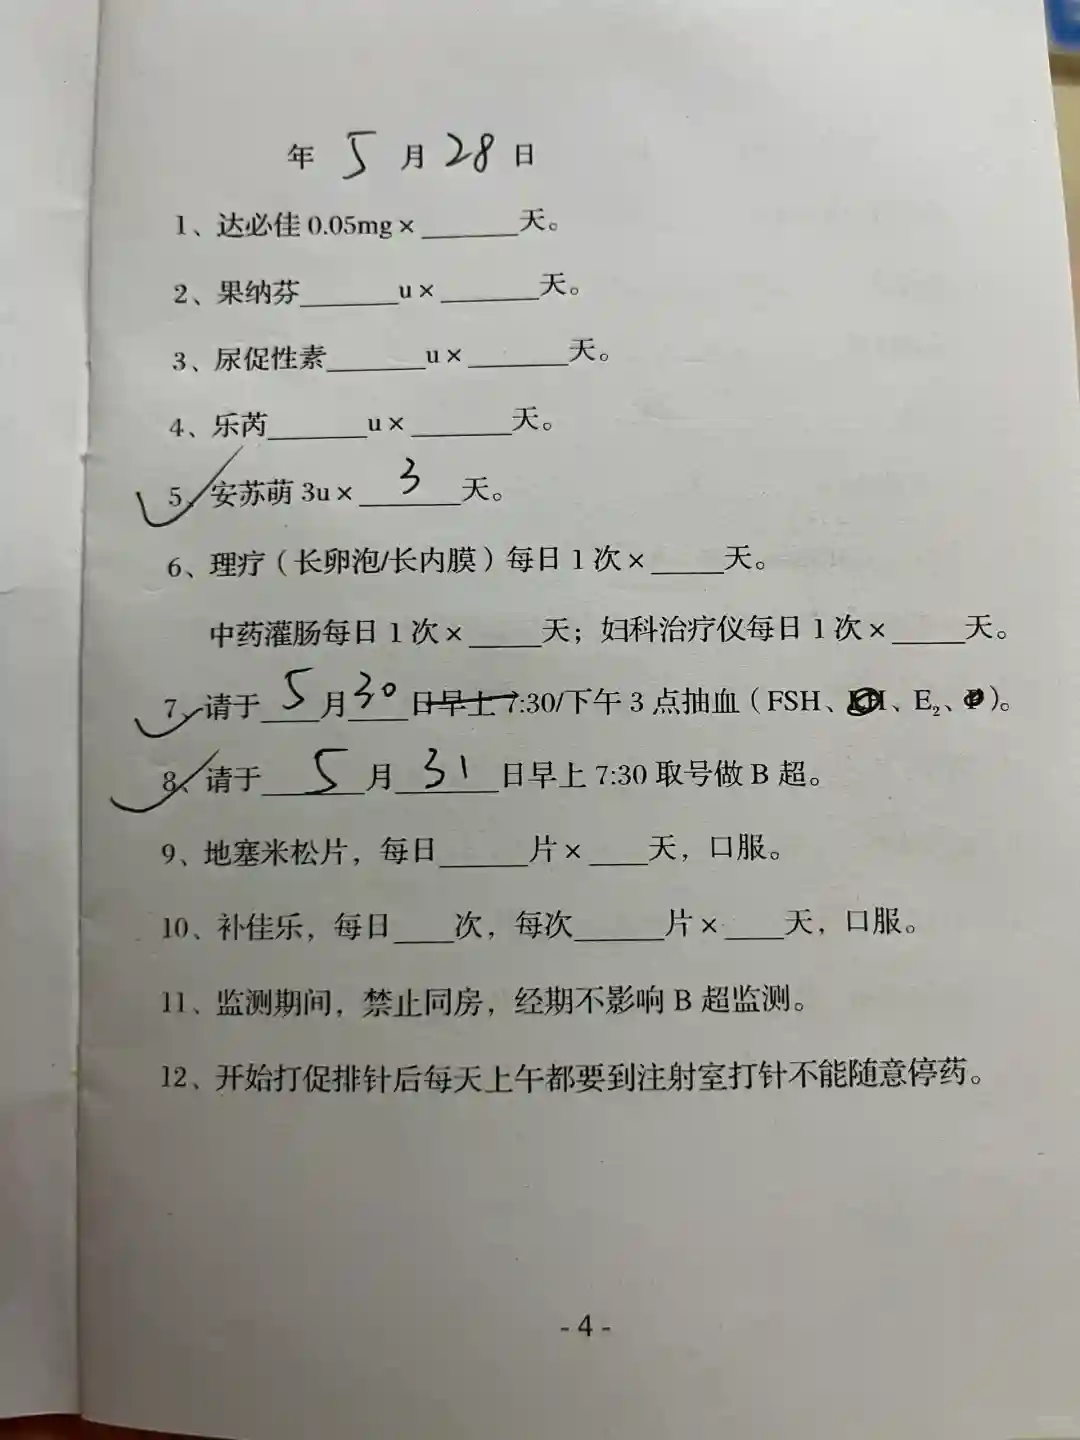 年 5 月 28 日
1、达必佳 0.05mg × ______天。
2、果纳芬______u × ______天。
3、尿促性素______u × ______天。
4、乐芮______u × ______天。
5、安苏萌 3u × 3 天。
6、理疗（长卵泡/长内膜）每日 1 次 × ____天。
中药灌肠每日 1 次 × ____天；妇科治疗仪每日 1 次 × ____天。
7、请于 5 月 30 日早上 7:30/下午 3 点抽血（FSH、LH、E₂、P）。
8、请于 5 月 31 日早上 7:30 取号做 B 超。
9、地塞米松片，每日______片 × ____天，口服。
10、补佳乐，每日____次，每次______片 × ____天，口服。
11、监测期间，禁止同房，经期不影响 B 超监测。
12、开始打促排针后每天上午都要到注射室打针不能随意停药。
- 4 -